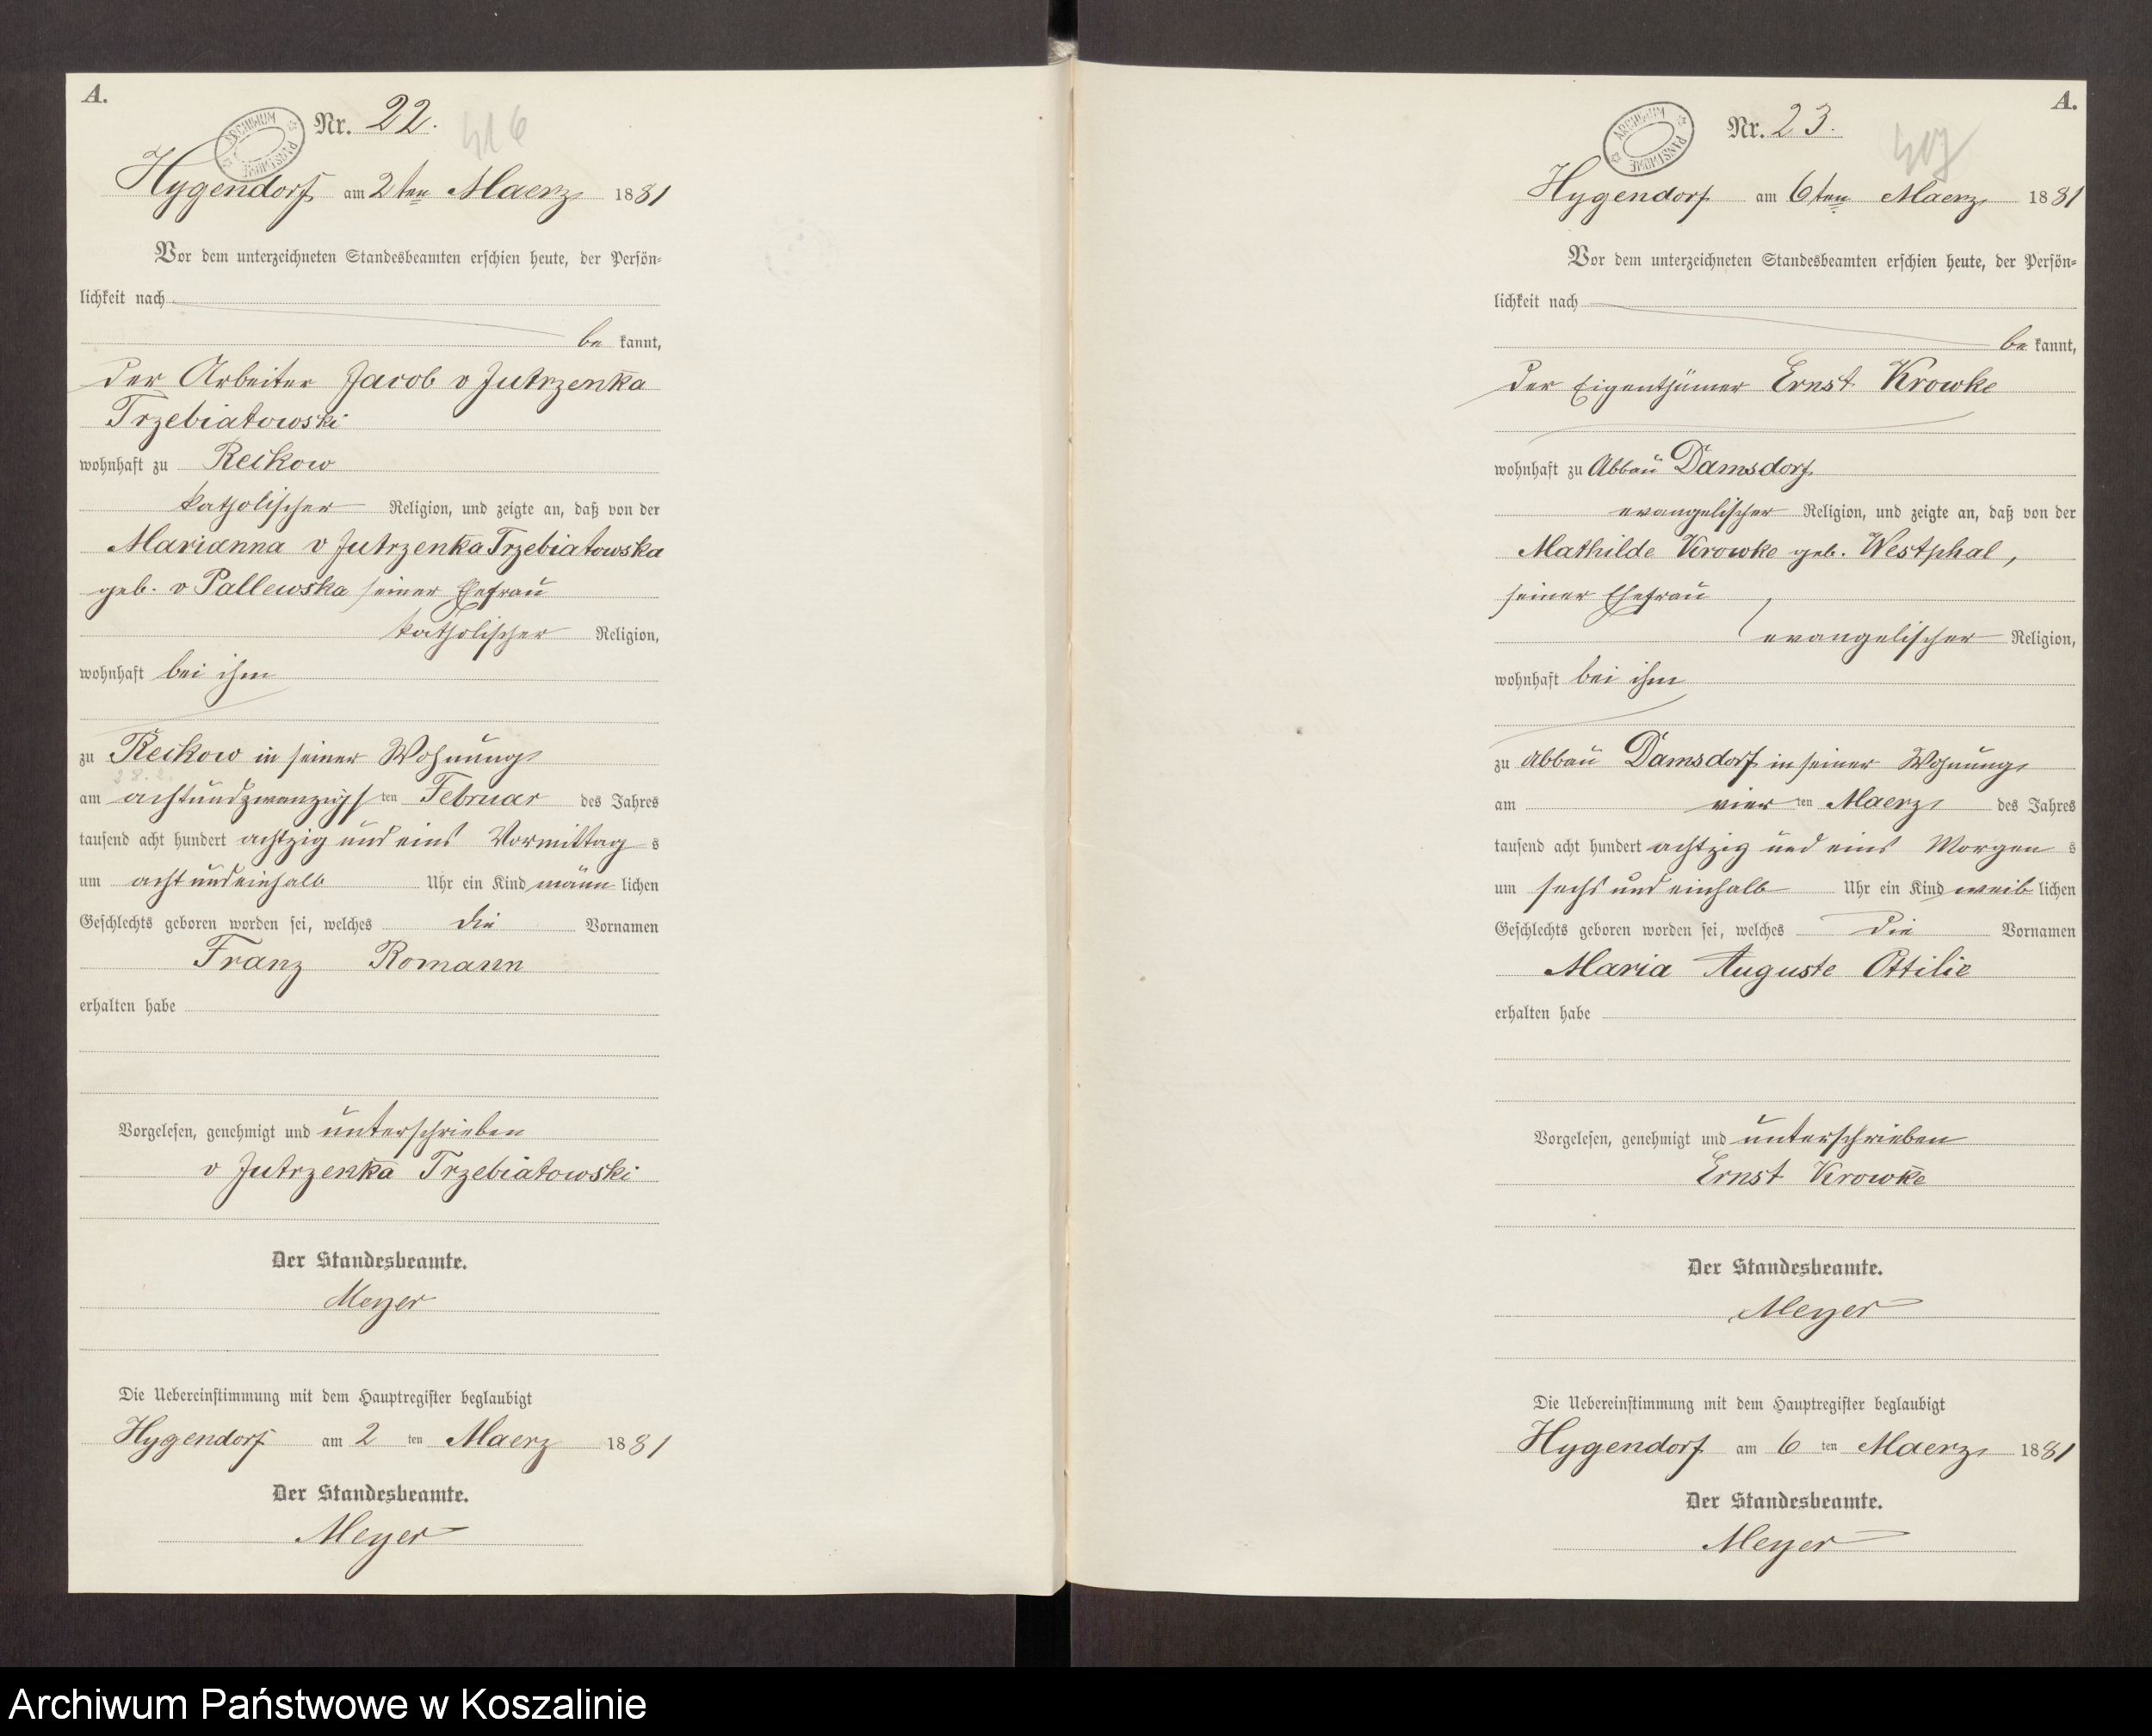 A.
ARCHIWUM PAŃSTWOWE
Nr. 22.
Hygendorf am 2ten Maerz 1881
Vor dem unterzeichneten Standesbeamten erschien heute, der Persön-
lichkeit nach
be kannt,
der Arbeiter Jacob v Jutrzenka
Trzebiatowski
wohnhaft zu Reckow
katholischer Religion, und zeigte an, daß von der
Marianna v Jutrzenka Trzebiatowska
geb. v Pallewska seiner Ehefrau
katholischer Religion,
wohnhaft bei ihm
zu Reckow in seiner Wohnung
28.2.
am achtundzwanzigsten Februar des Jahres
tausend acht hundert achtzig und eins Vormittag s
um acht und einhalb Uhr ein Kind männ lichen
Geschlechts geboren worden sei, welches die Vornamen
Franz Romann
erhalten habe
Vorgelesen, genehmigt und unterschrieben
v Jutrzenka Trzebiatowski
Der Standesbeamte.
Meyer
Die Uebereinstimmung mit dem Hauptregister beglaubigt
Hygendorf am 2 ten Maerz 1881
Der Standesbeamte.
Meyer
A.
ARCHIWUM PAŃSTWOWE
Nr. 23.
Hygendorf am 6ten Maerz 1881
Vor dem unterzeichneten Standesbeamten erschien heute, der Persön-
lichkeit nach
be kannt,
der Eigenthümer Ernst Krowke
wohnhaft zu Abbau Damsdorf
evangelischer Religion, und zeigte an, daß von der
Mathilde Krowke geb. Westphal,
seiner Ehefrau
evangelischer Religion,
wohnhaft bei ihm
zu Abbau Damsdorf in seiner Wohnung
am vier ten Maerz des Jahres
tausend acht hundert achtzig und eins Morgen s
um sechs und einhalb Uhr ein Kind weib lichen
Geschlechts geboren worden sei, welches die Vornamen
Maria Auguste Ottilie
erhalten habe
Vorgelesen, genehmigt und unterschrieben
Ernst Krowke
Der Standesbeamte.
Meyer
Die Uebereinstimmung mit dem Hauptregister beglaubigt
Hygendorf am 6 ten Maerz 1881
Der Standesbeamte.
Meyer
Archiwum Państwowe w Koszalinie